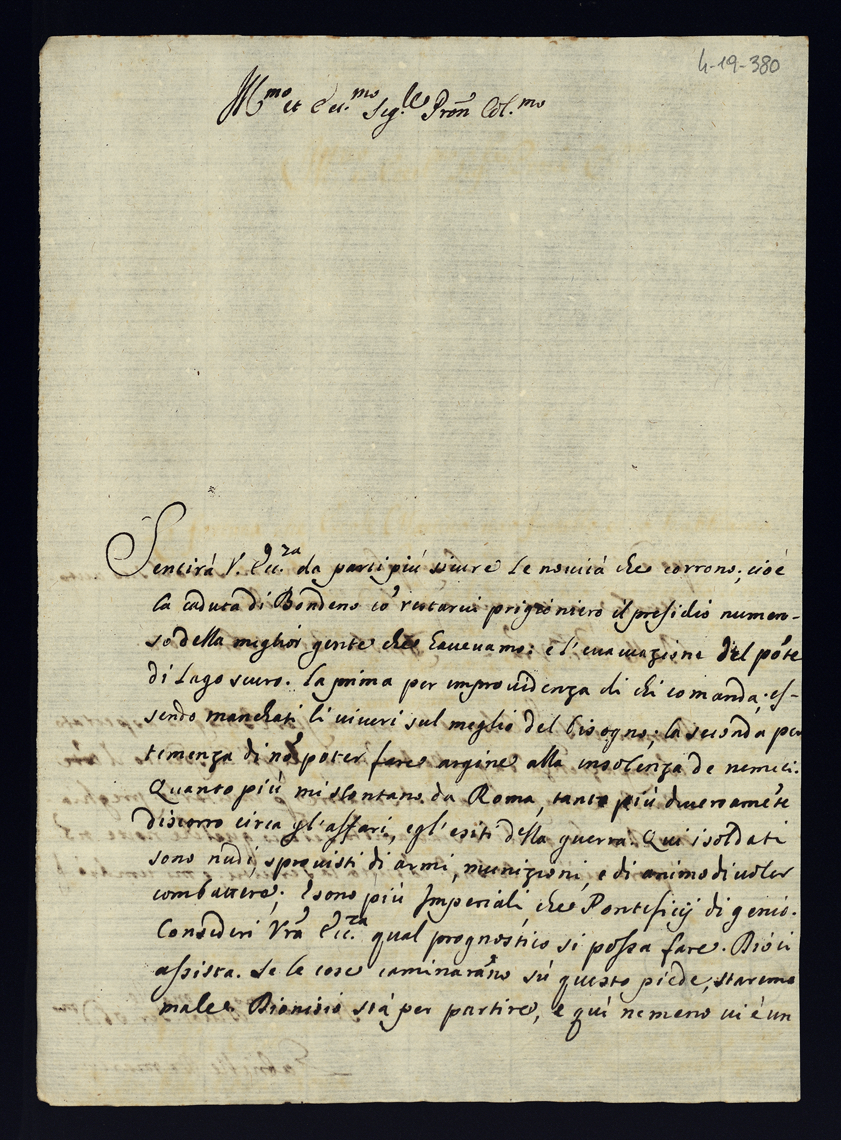 4-19-380
Ill.mo et Ecc.mo Sig.re Pron Col.mo
Sentirà V. Ecc.za da parti più sicure le novità che corrono; cioè
la caduta di Bondeno cō restarvi prigioniero il presidio numero-
so della miglior gente che havevamo: e l'evacuazione del pōte
di Lago scuro. la prima per improvidenza di chi comanda; es-
sendo manchati li viveri sul meglio del bisogno; la seconda per
temenza di nō poter fare argine alla insolenza de nemici.
Quanto più mi slontano da Roma, tanto più diversamēte
discorro circa gl'affari, e gl'esiti della guerra. Qui i soldati
sono nudi, sprovisti di armi, munizioni, e di animo di voler
combattere; e sono più Imperiali, che Pontificij di genio.
Consideri Vrā Ecc.za qual prognostico si possa fare. Dio ci
assista. Se le cose caminarāno sù questo piede, staremo
male. Dionisio stà per partire, e quì nemeno vi è un